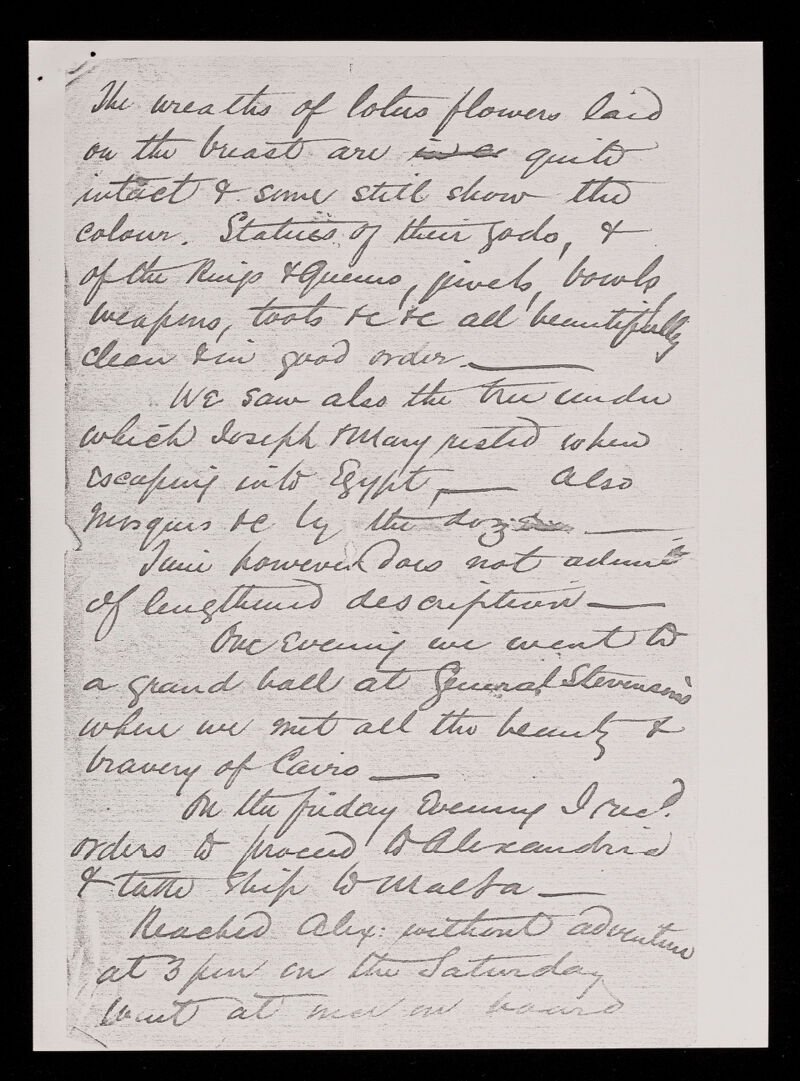 The wreaths of lotus flowers laid
on the breast are in a quite
intact & some still show the
colour. Statues of their gods, &
of the Kings & Queens, jewels, bowls,
weapons, tools &c &c all beautifully
clean & in good order.—
We saw also the tree under
which Joseph & Mary rested when
escaping into Egypt,— Also
Mosques &c by the dozen —
Time however does not admit
of lengthened description —
One Evening we went to
a grand ball at General Stevenson's
where we met all the beauty &
bravery of Cairo —
On the friday Evening I recd.
orders to proceed to Alexandria
& take ship to Malta —
Reached Alex: without adventure
at 3 pm on the Saturday
went at once on board